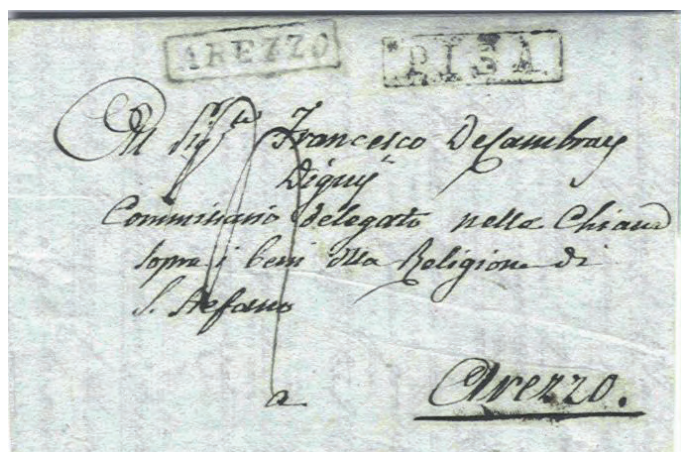 AREZZO PISA
Al Sig.re Francesco DeCambray
Digny
Commissario Delegato nelle Chiane
sopra i beni della Religione di
S. Stefano
a Arezzo.